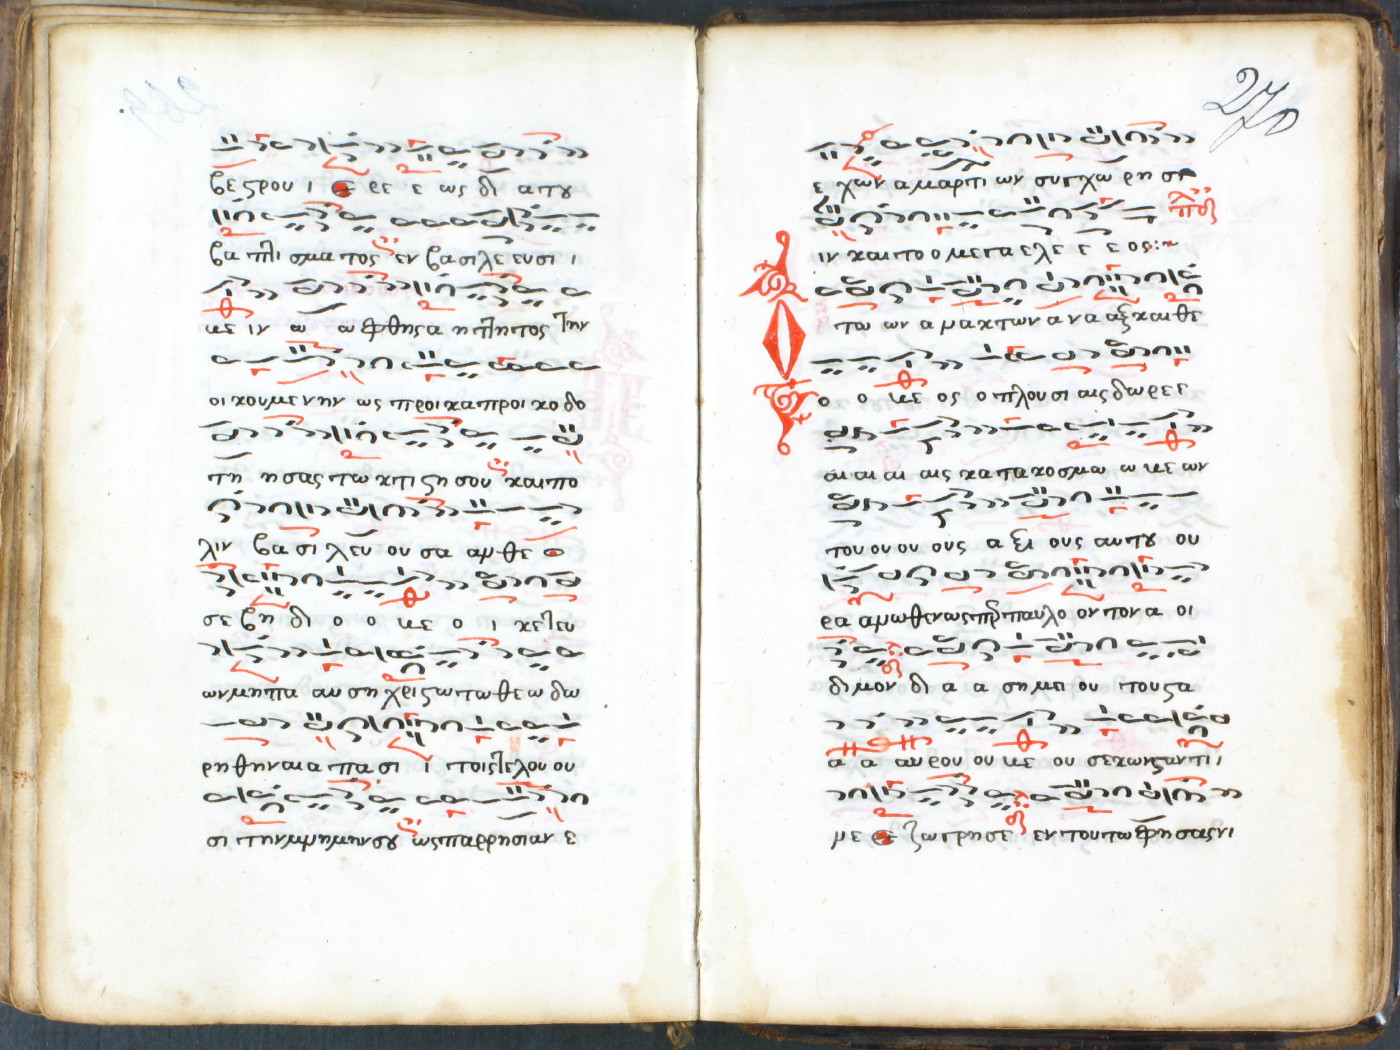 βεςρου ι ε ρε ε ως δι α του
βα πτι σμα τος εν βα σι λε ευ σι ι
με ιν ω ω φθης α ητ τη τος την
οι κου με νην ως προι κα προι κο δο
τη η σας τω κτι ςη σου και πο
λιν βα σι λευ ου σα αν θε ο
σε βη δι ο ο με ο ι κε τευ
ων μη πα αυ ση χρι ςω τω θε ω δω
ρη θη ναι α πα σι ι τοις τε λου ου
σι την μνη μην σου ως παρρησιαν ε
270
ε χων α μαρ τι ων συγ χω ρη σι
ιν και το ο με γα ε λε ε ε ος :~
Ο των α μα κτων α να αξ και θε
ο ο με ος ο πλου σι αις δω ρε ε
αι αι αι αις κα τα κο σμω ω με ων
του ου ου ους α ξι ους αυ του ου
ρα α μω θεν ως πρ παυλο ον τον α οι
δι μον δι α α ση μει ου του ςα
α α αυ ρου ου με ου σε κων ςαν τι ι
με ε ζω γρη σε εν του τω φη σας νι